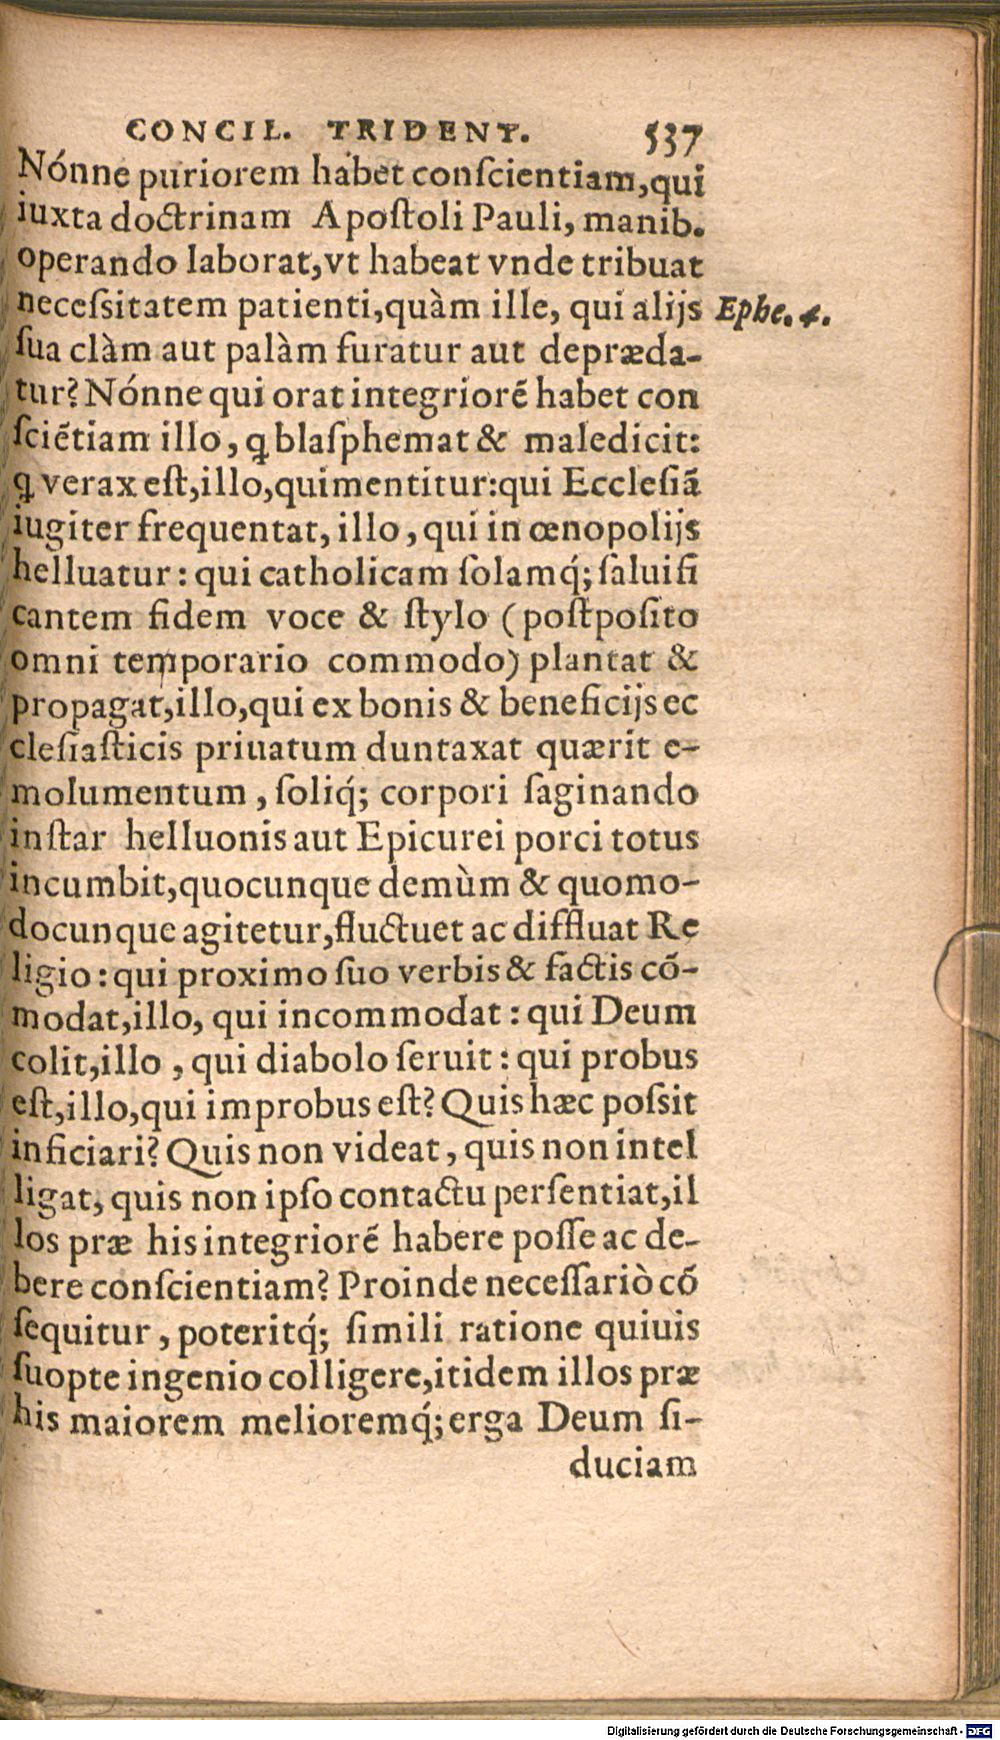 CONCIL. TRIDENT. 537
Nónne puriorem habet conſcientiam,qui
iuxta doctrinam Apoſtoli Pauli, manib.
operando laborat,vt habeat vnde tribuat
neceſsitatem patienti,quàm ille, qui alijs Ephe. 4.
ſua clàm aut palàm furatur aut depræda-
tur? Nónne qui orat integriorẽ habet con
ſciẽtiam illo, ꝗ blaſphemat & maledicit:
ꝗ verax eſt,illo,quimentitur:qui Eccleſiã
iugiter frequentat, illo, qui in œnopolijs
helluatur: qui catholicam ſolamq́; ſaluifi
cantem fidem voce & ſtylo (poſtpoſito
omni temporario commodo) plantat &
propagat,illo,qui ex bonis & beneficijs ec
cleſiaſticis priuatum duntaxat quærit e-
molumentum, ſoliq́; corpori ſaginando
inſtar helluonis aut Epicurei porci totus
incumbit,quocunque demùm & quomo-
docunque agitetur,fluctuet ac diffluat Re
ligio: qui proximo ſuo verbis & factis cõ-
modat,illo, qui incommodat: qui Deum
colit,illo, qui diabolo ſeruit: qui probus
eſt,illo,qui improbus eſt? Quis hæc poſsit
inficiari? Quis non videat, quis non intel
ligat, quis non ipſo contactu perſentiat,il
los præ his integriorẽ habere poſſe ac de-
bere conſcientiam? Proinde neceſſariò cõ
ſequitur, poteritq́; ſimili ratione quiuis
ſuopte ingenio colligere,itidem illos præ
his maiorem melioremq́; erga Deum fi-
duciam
Digitalisierung gefördert durch die Deutsche Forschungsgemeinschaft - DFG